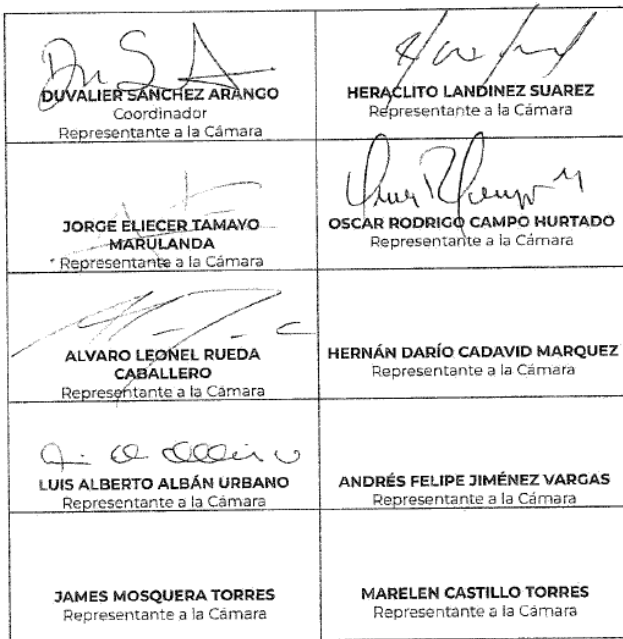 DUVALIER SÁNCHEZ ARANGO
Coordinador
Representante a la Cámara
HERACLITO LANDINEZ SUAREZ
Representante a la Cámara
JORGE ELIECER TAMAYO
MARULANDA
Representante a la Cámara
OSCAR RODRIGO CAMPO HURTADO
Representante a la Cámara
ALVARO LEONEL RUEDA
CABALLERO
Representante a la Cámara
HERNÁN DARÍO CADAVID MARQUEZ
Representante a la Cámara
LUIS ALBERTO ALBÁN URBANO
Representante a la Cámara
ANDRÉS FELIPE JIMÉNEZ VARGAS
Representante a la Cámara
JAMES MOSQUERA TORRES
Representante a la Cámara
MARELEN CASTILLO TORRES
Representante a la Cámara